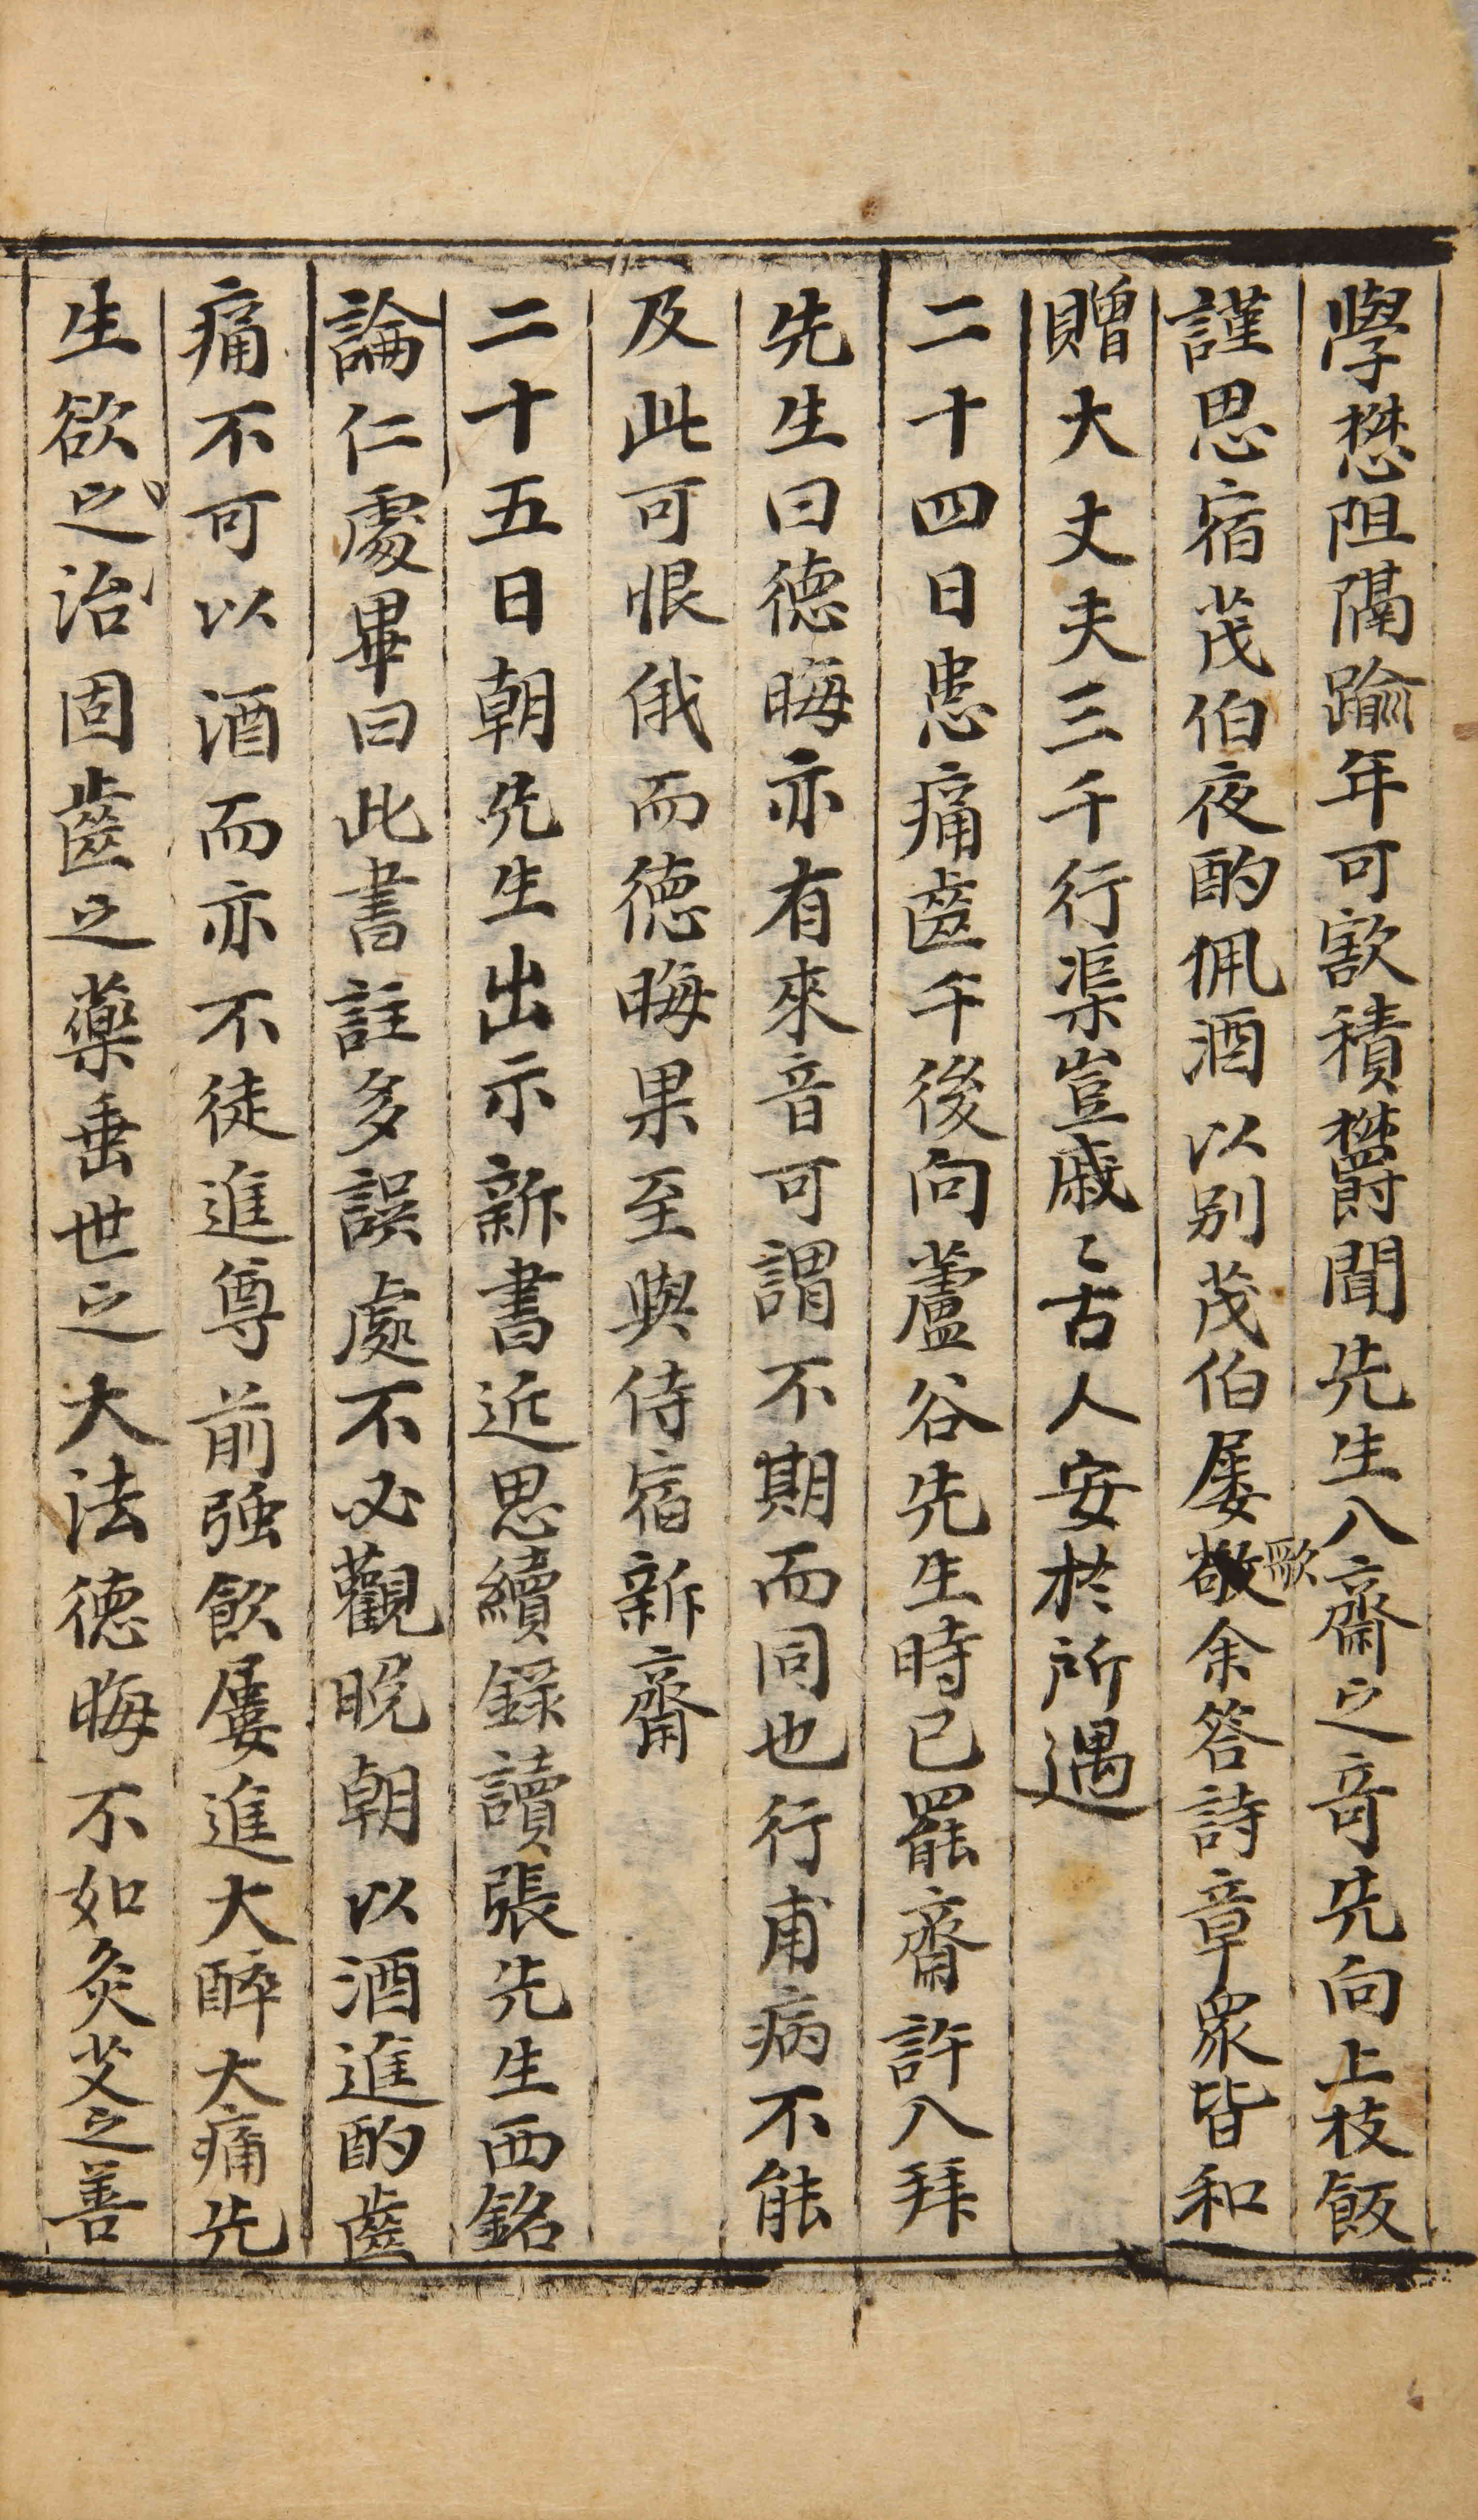 學懋阻隔踰年可欵積欝聞先生入齋之音先向上枝飯
謹思宿茂伯夜酌佩酒以别茂伯屡歌余答詩章眾皆和
贈大丈夫三千行渠豈戚〻古人安於所遇
二十四日患痛齒午後向蘆谷先生時已罷齋許入拜
先生曰德晦亦有來音可謂不期而同也行甫病不能
及此可恨俄而德晦果至與侍宿新齋
二十五日朝先生出示新書近思續錄讀張先生西銘
論仁處畢曰此書註多誤處不必觀晩朝以酒進酌齒
痛不可以酒而亦不徒進尊前强飮屢進大醉大痛先
生欲治之固齒之藥垂世之大法德晦不如灸艾之善